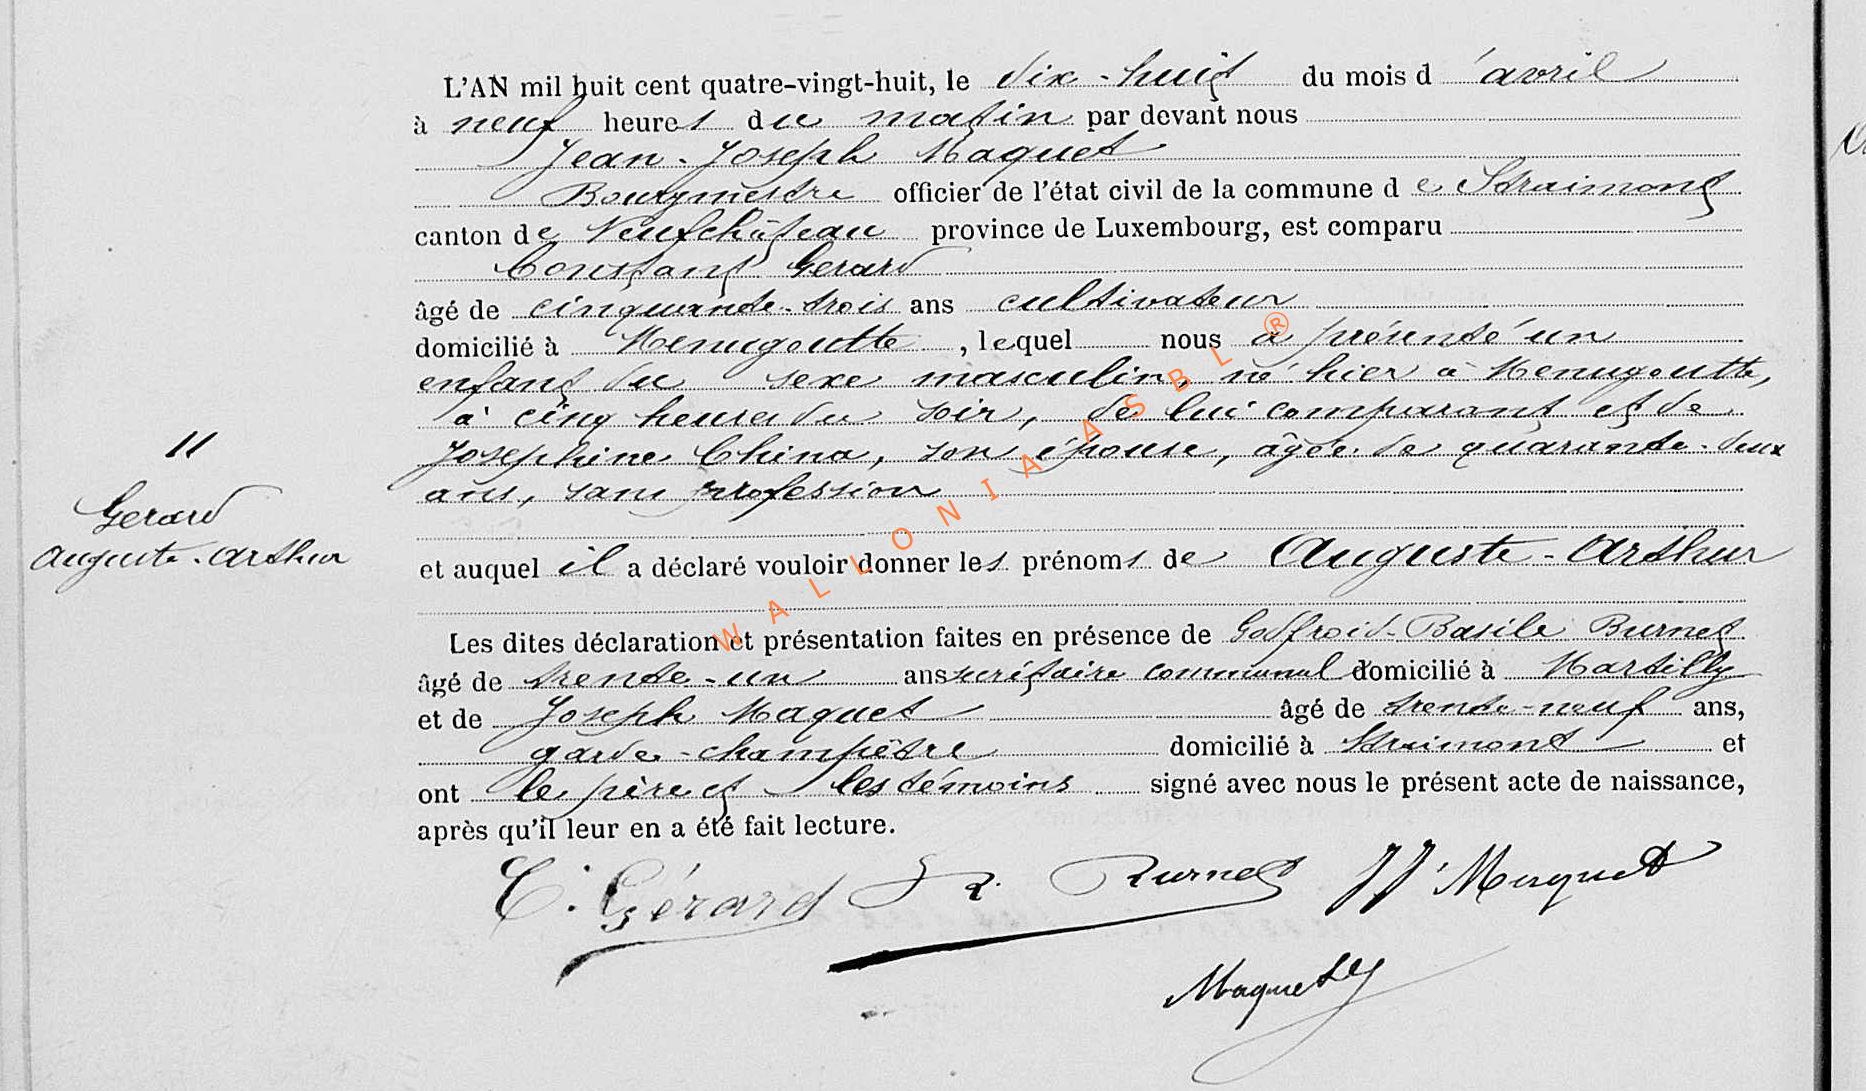 L'AN mil huit cent quatre-vingt-huit, le dix-huit du mois d'avril
à neuf heures du matin par devant nous
Jean-Joseph Maquet
Bourgmestre officier de l'état civil de la commune de Straimont
canton de Neufchâteau province de Luxembourg, est comparu
Constant Gerard
âgé de cinquante-trois ans cultivateur
domicilié à Menugoutte, lequel nous a présenté un
enfant du sexe masculin, né hier à Menugoutte,
à cinq heures du soir, de lui comparant et de
Josephine China, son épouse, âgée de quarante-deux
ans, sans profession
11
Gerard
Auguste-Arthur
et auquel il a déclaré vouloir donner les prénoms de Auguste-Arthur
Les dites déclaration et présentation faites en présence de Godfroid-Basile Burnet
âgé de trente-un ans secrétaire communal domicilié à Martilly
et de Joseph Maquet âgé de trente-neuf ans,
garde-champêtre domicilié à Straimont et
ont le père et les témoins signé avec nous le présent acte de naissance,
après qu'il leur en a été fait lecture.
C. Gérard Burnet JJ Maquet
Maquet
WALLONIA ASBL ®